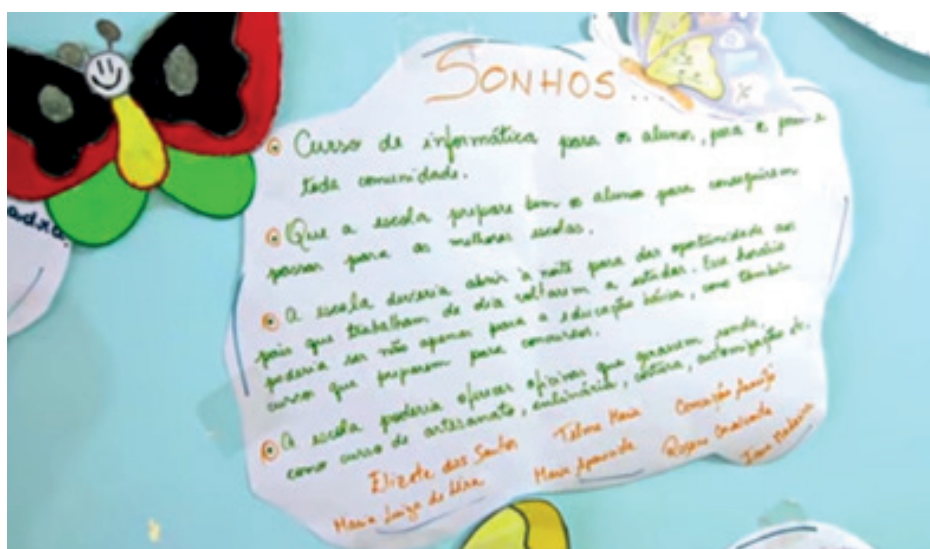 SONHOS...
Curso de informática para os alunos, para os pais e
toda comunidade.
Que a escola prepare bem os alunos para conseguirem
passar para as melhores escolas.
A escola deveria abrir à noite para dar oportunidade aos
pais que trabalham de dia voltarem a estudar. Esse horário
poderia ser não apenas para a educação básica, como também
cursos que preparem para concursos.
A escola poderia oferecer oficinas que gerassem renda,
como curso de artesanato, culinária, costura, automização etc.
Elizete dos Santos Telma Maria Conceição
Maria Luiza de Lira Maria Aparecida Rosane Cavalcante